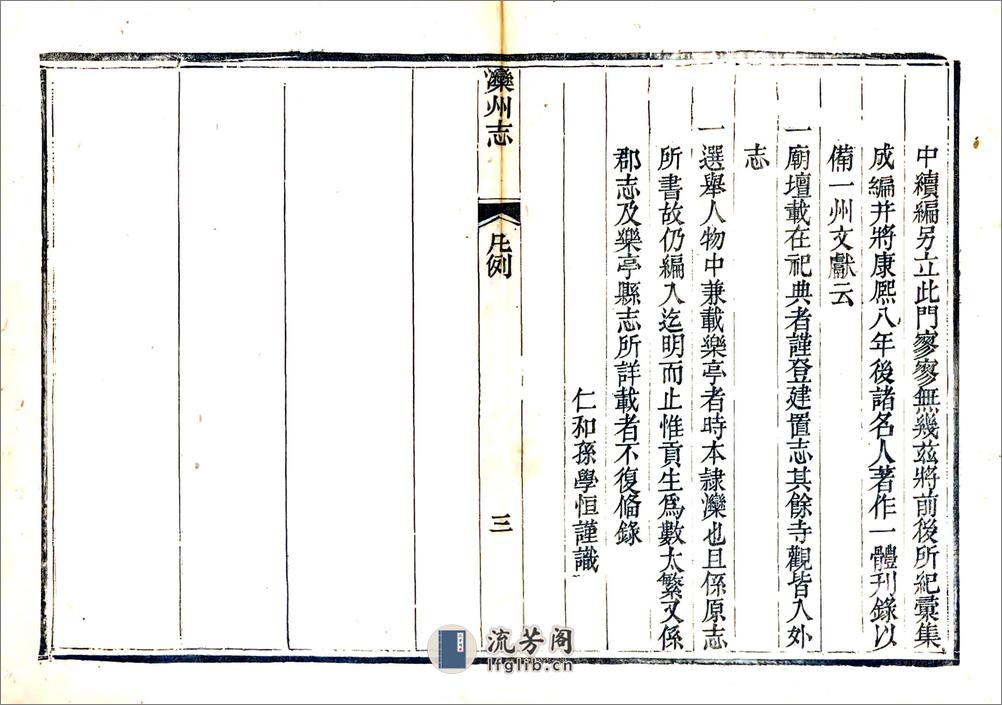 中續編另立此門寥寥無幾茲將前後所紀彙集
成編幷將康熙八年後諸名人著作一體刊錄以
備一州文獻云
一廟壇載在祀典者謹登建置志其餘寺觀皆入外
志
一選舉人物中兼載樂亭者時本隷灤也且係原志
所書故仍編入迄明而止惟貢生爲數太繁又係
郡志及樂亭縣志所詳載者不復備錄
仁和孫學恒謹識
灤州志
凡例
三
流芳阁
lfglib.cn